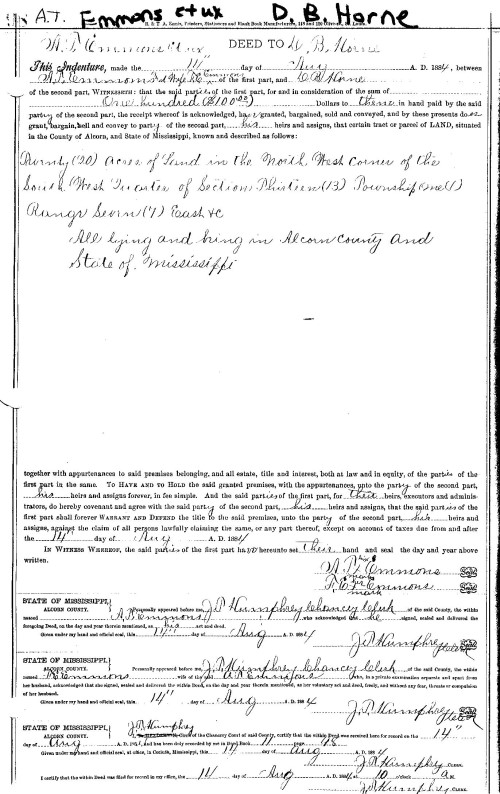 A.T. Emmons et ux D. B. Horne
A. T. Emmons et ux DEED TO D. B. Horne
This Indenture, made the 14" day of Aug A. D. 1884, between
A. T. Emmons and Wife Emmons of the first part, and D B Horne
of the second part, WITNESSETH: that the said parties of the first part, for and in consideration of the sum of
One hundred ($100 00) Dollars to them in hand paid by the said
party of the second part, the receipt whereof is acknowledged, has granted, bargained, sold and conveyed, and by these presents does
grant, bargain, sell and convey to party of the second part, his heirs and assigns, that certain tract or parcel of LAND, situated
in the County of Alcorn, and State of Mississippi, known and described as follows:
Twenty (20) Acres of Land in the North West corner of the
South West Quarter of Section Thirteen (13) Township One (1)
Range Seven (7) East &c
All lying and being in Alcorn County and
State of Mississippi
together with appurtenances to said premises belonging, and all estate, title and interest, both at law and in equity, of the parties of the
first part in the same. TO HAVE AND TO HOLD the said granted premises, with the appurtenances, unto the party of the second part,
his heirs and assigns forever, in fee simple. And the said parties of the first part, for their heirs, executors and administra-
tors, do hereby covenant and agree with the said party of the second part, his heirs and assigns, that the said parties of the
first part shall forever WARRANT AND DEFEND the title to the said premises, unto the party of the second part, his heirs and
assigns, against the claim of all persons lawfully claiming the same, or any part thereof, except on account of taxes due from and after
the 14" day of Aug A. D. 1884
IN WITNESS WHEREOF, the said parties of the first part have hereunto set their hand and seal the day and year above
written.
A. T. Emmons
Emmons
mark
STATE OF MISSISSIPPI,
ALCORN COUNTY. Personally appeared before me, J. P. Humphrey Chancy Clerk of the said County, the within
named A. T. Emmons who acknowledged that he signed, sealed and delivered the
foregoing Deed, on the day and year therein mentioned, as his act and deed.
Given under my hand and official seal, this 14" day of Aug A. D. 1884
J. P. Humphrey
STATE OF MISSISSIPPI,
ALCORN COUNTY. Personally appeared before me, J. P. Humphrey Chancy Clerk of the said County, the within
named Emmons wife of the A T Emmons who, in a private examination separate and apart from
her husband, acknowledged that she signed, sealed and delivered the within Deed, on the day and year therein mentioned, as her voluntary act and deed, freely, and without any fear, threats or compulsion
of her husband.
Given under my hand and official seal, this 14" day of Aug A. D. 1884
J. P. Humphrey
STATE OF MISSISSIPPI,
ALCORN COUNTY. J. P. Humphrey Clerk of the Chancery Court of said County, certify that the within Deed was received here for record on the 14"
day of Aug A. D. 1884, and has been duly recorded by me in Deed Book 11 page 48
Given under my hand and official seal, at office, in Corinth, Mississippi, this 14 day of Aug A. D. 1884
J. P. Humphrey CLERK.
I certify that the within Deed was filed for record in my office, the 14 day of Aug A. D. 1884 at 10 o'clock A M.
J. P. Humphrey CLERK.